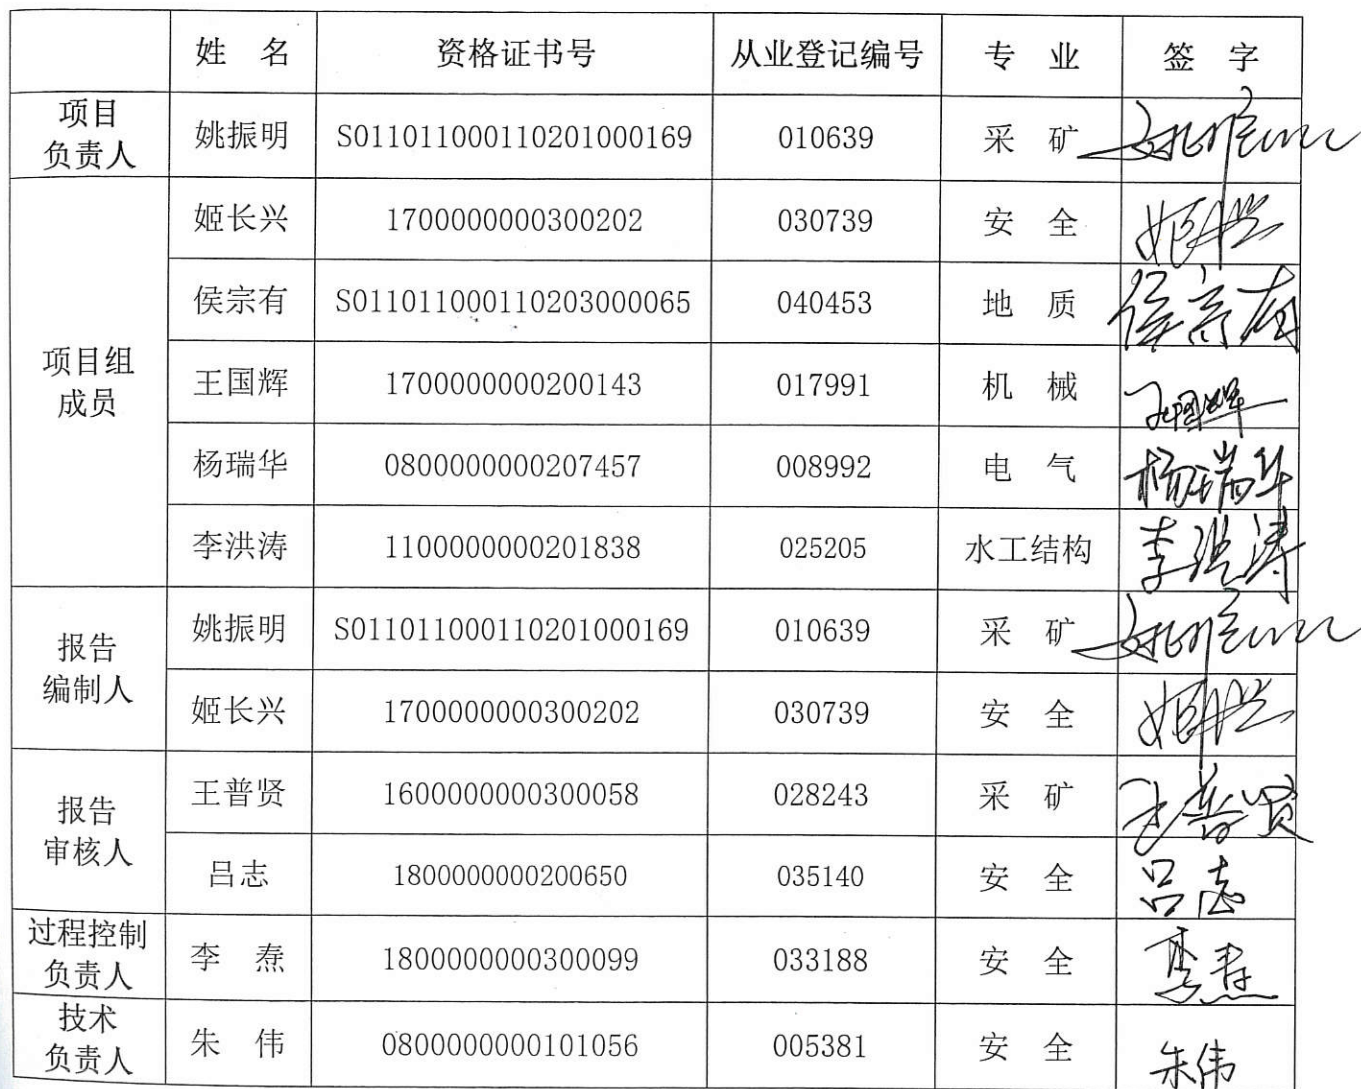 姓 名 资格证书号 从业登记编号 专 业 签 字
项目
负责人 姚振明 S011011000110201000169 010639 采 矿 姚振明
项目组
成员
姬长兴 1700000000300202 030739 安 全 姬长兴
侯宗有 S011011000110203000065 040453 地 质 侯宗有
王国辉 1700000000200143 017991 机 械 王国辉
杨瑞华 0800000000207457 008992 电 气 杨瑞华
李洪涛 1100000000201838 025205 水工结构 李洪涛
报告
编制人
姚振明 S011011000110201000169 010639 采 矿 姚振明
姬长兴 1700000000300202 030739 安 全 姬长兴
报告
审核人
王普贤 1600000000300058 028243 采 矿 王普贤
吕志 1800000000200650 035140 安 全 吕志
过程控制
负责人 李 焘 1800000000300099 033188 安 全 李焘
技术
负责人 朱 伟 0800000000101056 005381 安 全 朱伟